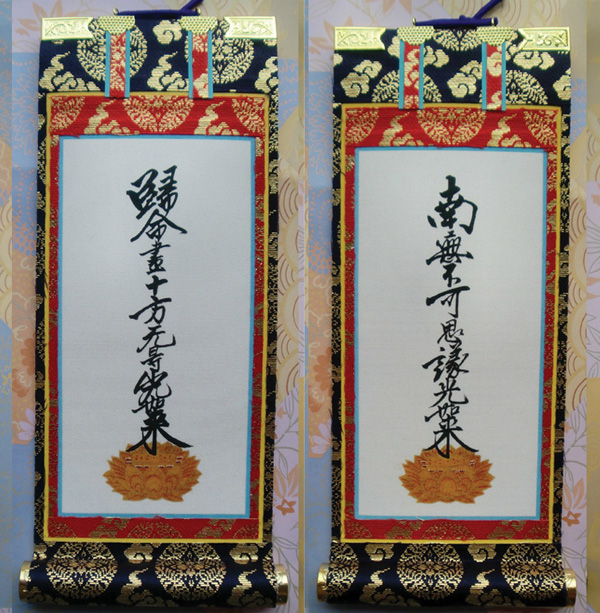 南無不可思議光如来
歸命盡十方无㝵光如来